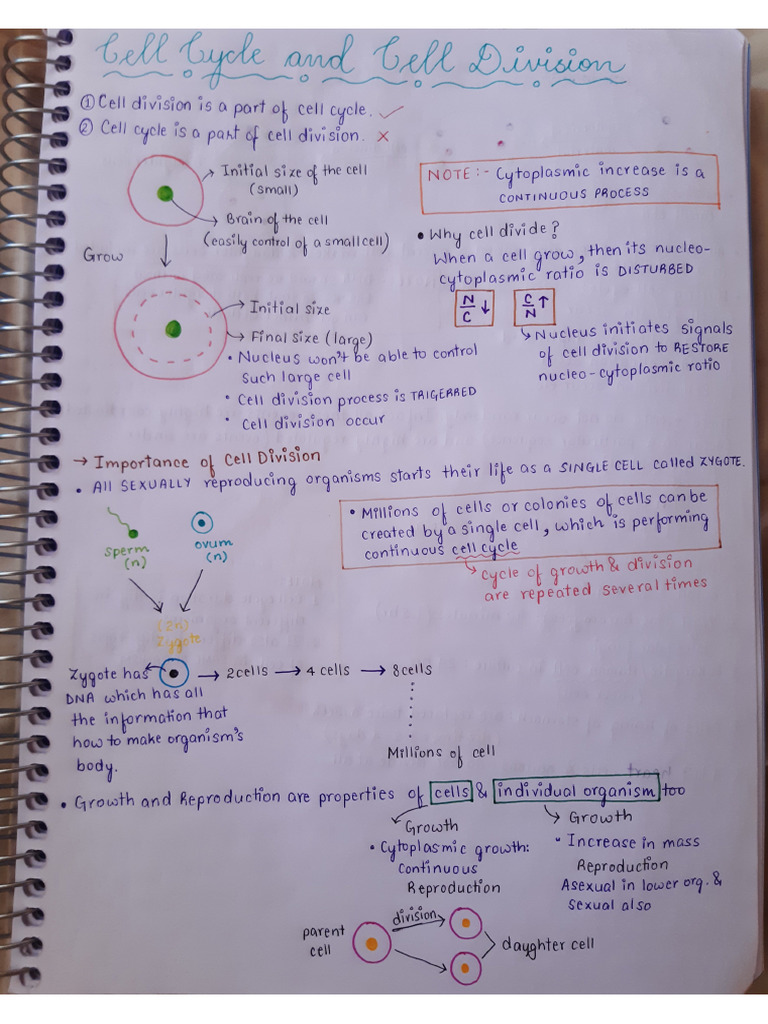 Cell Cycle and Cell Division
① Cell division is a part of cell cycle. ✓
② Cell cycle is a part of cell division. ✗
Initial size of the cell
(small)
Brain of the cell
(easily control of a small cell)
Grow
Initial size
Final size (large)
• Nucleus won't be able to control
such large cell
• Cell division process is TRIGERRED
• Cell division occur
NOTE :- Cytoplasmic increase is a
CONTINUOUS PROCESS
• Why cell divide?
When a cell grow, then its nucleo-
cytoplasmic ratio is DISTURBED
N/C ↓ C/N ↑
Nucleus initiates signals
of cell division to RESTORE
nucleo-cytoplasmic ratio
→ Importance of Cell Division
• All SEXUALLY reproducing organisms starts their life as a SINGLE CELL called ZYGOTE.
sperm
(n)
ovum
(n)
(2n)
Zygote
• Millions of cells or colonies of cells can be
created by a single cell, which is performing
continuous cell cycle
cycle of growth & division
are repeated several times
Zygote has → 2 cells → 4 cells → 8 cells
DNA which has all
the information that
how to make organism's
body.
Millions of cell
• Growth and Reproduction are properties of cells & individual organism too
Growth
• Cytoplasmic growth:
Continuous
Reproduction
Growth
• Increase in mass
Reproduction
Asexual in lower org. &
Sexual also
parent
cell
division
daughter cell